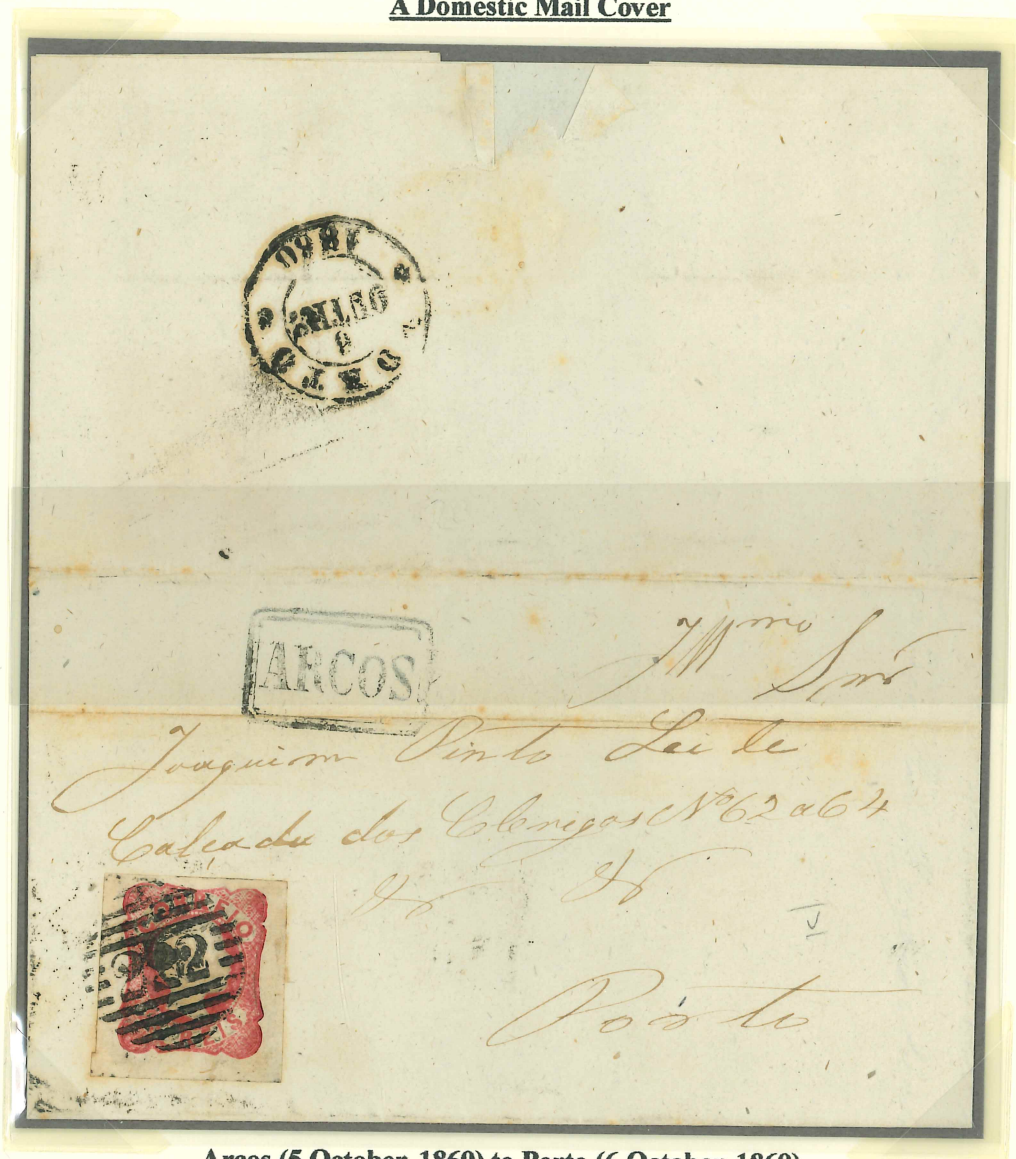 A Domestic Mail Cover
1860
OUTRO
6
PORTO
ARCOS
Illmo Snr
Joaquim Pinto Leite
Calçada dos Clerigos Nº 62 a 64
Porto
CORREIO
REIS
Arcos (5 October, 1860) to Porto (6 October, 1860)